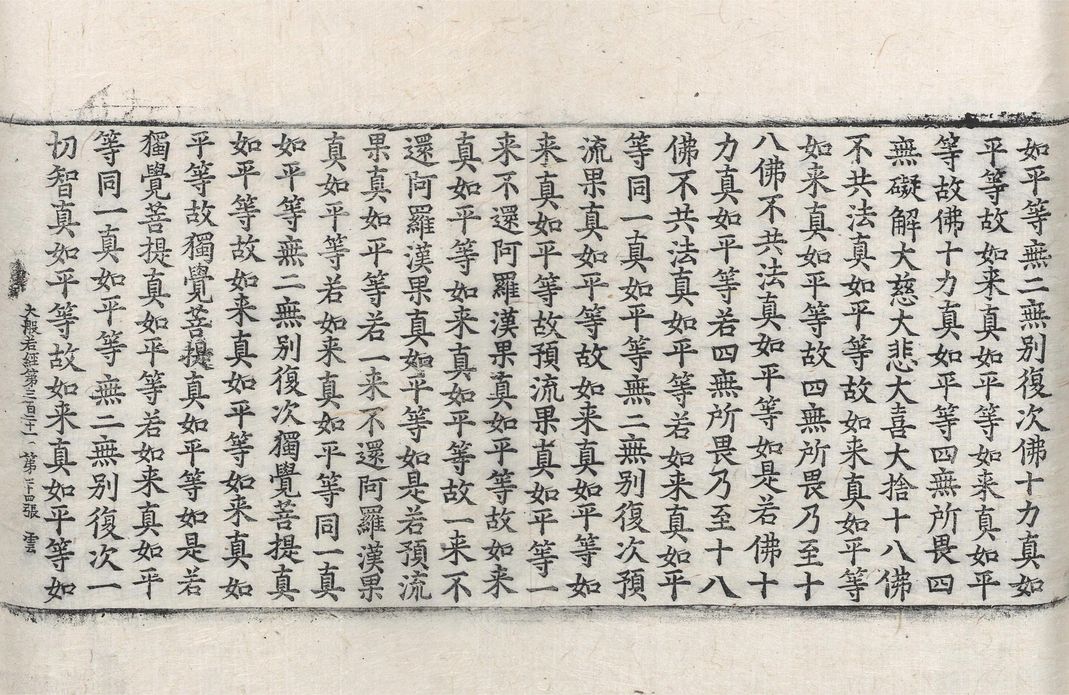 如平等無二無別復次佛十力真如
平等故如来真如平等如来真如平
等故佛十力真如平等四無所畏四
無礙解大慈大悲大喜大捨十八佛
不共法真如平等故如来真如平等
如来真如平等故四無所畏乃至十
八佛不共法真如平等如是若佛十
力真如平等若四無所畏乃至十八
佛不共法真如平等若如来真如平
等同一真如平等無二無別復次預
流果真如平等故如来真如平等如
来真如平等故預流果真如平等一
来不還阿羅漢果真如平等故如来
真如平等如来真如平等故一来不
還阿羅漢果真如平等如是若預流
果真如平等若一来不還阿羅漢果
真如平等若如来真如平等同一真
如平等無二無別復次獨覺菩提真
如平等故如来真如平等如来真如
平等故獨覺菩提真如平等如是若
獨覺菩提真如平等若如来真如平
等同一真如平等無二無別復次一
切智真如平等故如来真如平等如
大般若經第三百二十一 第二十四張 雲